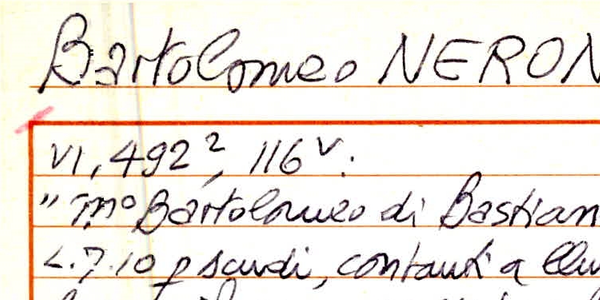 Bartolomeo NERON
VI, 492², 116ᵛ.
"mº Bartolomeo di Bastian
L.7.10 p scudi, contanti a